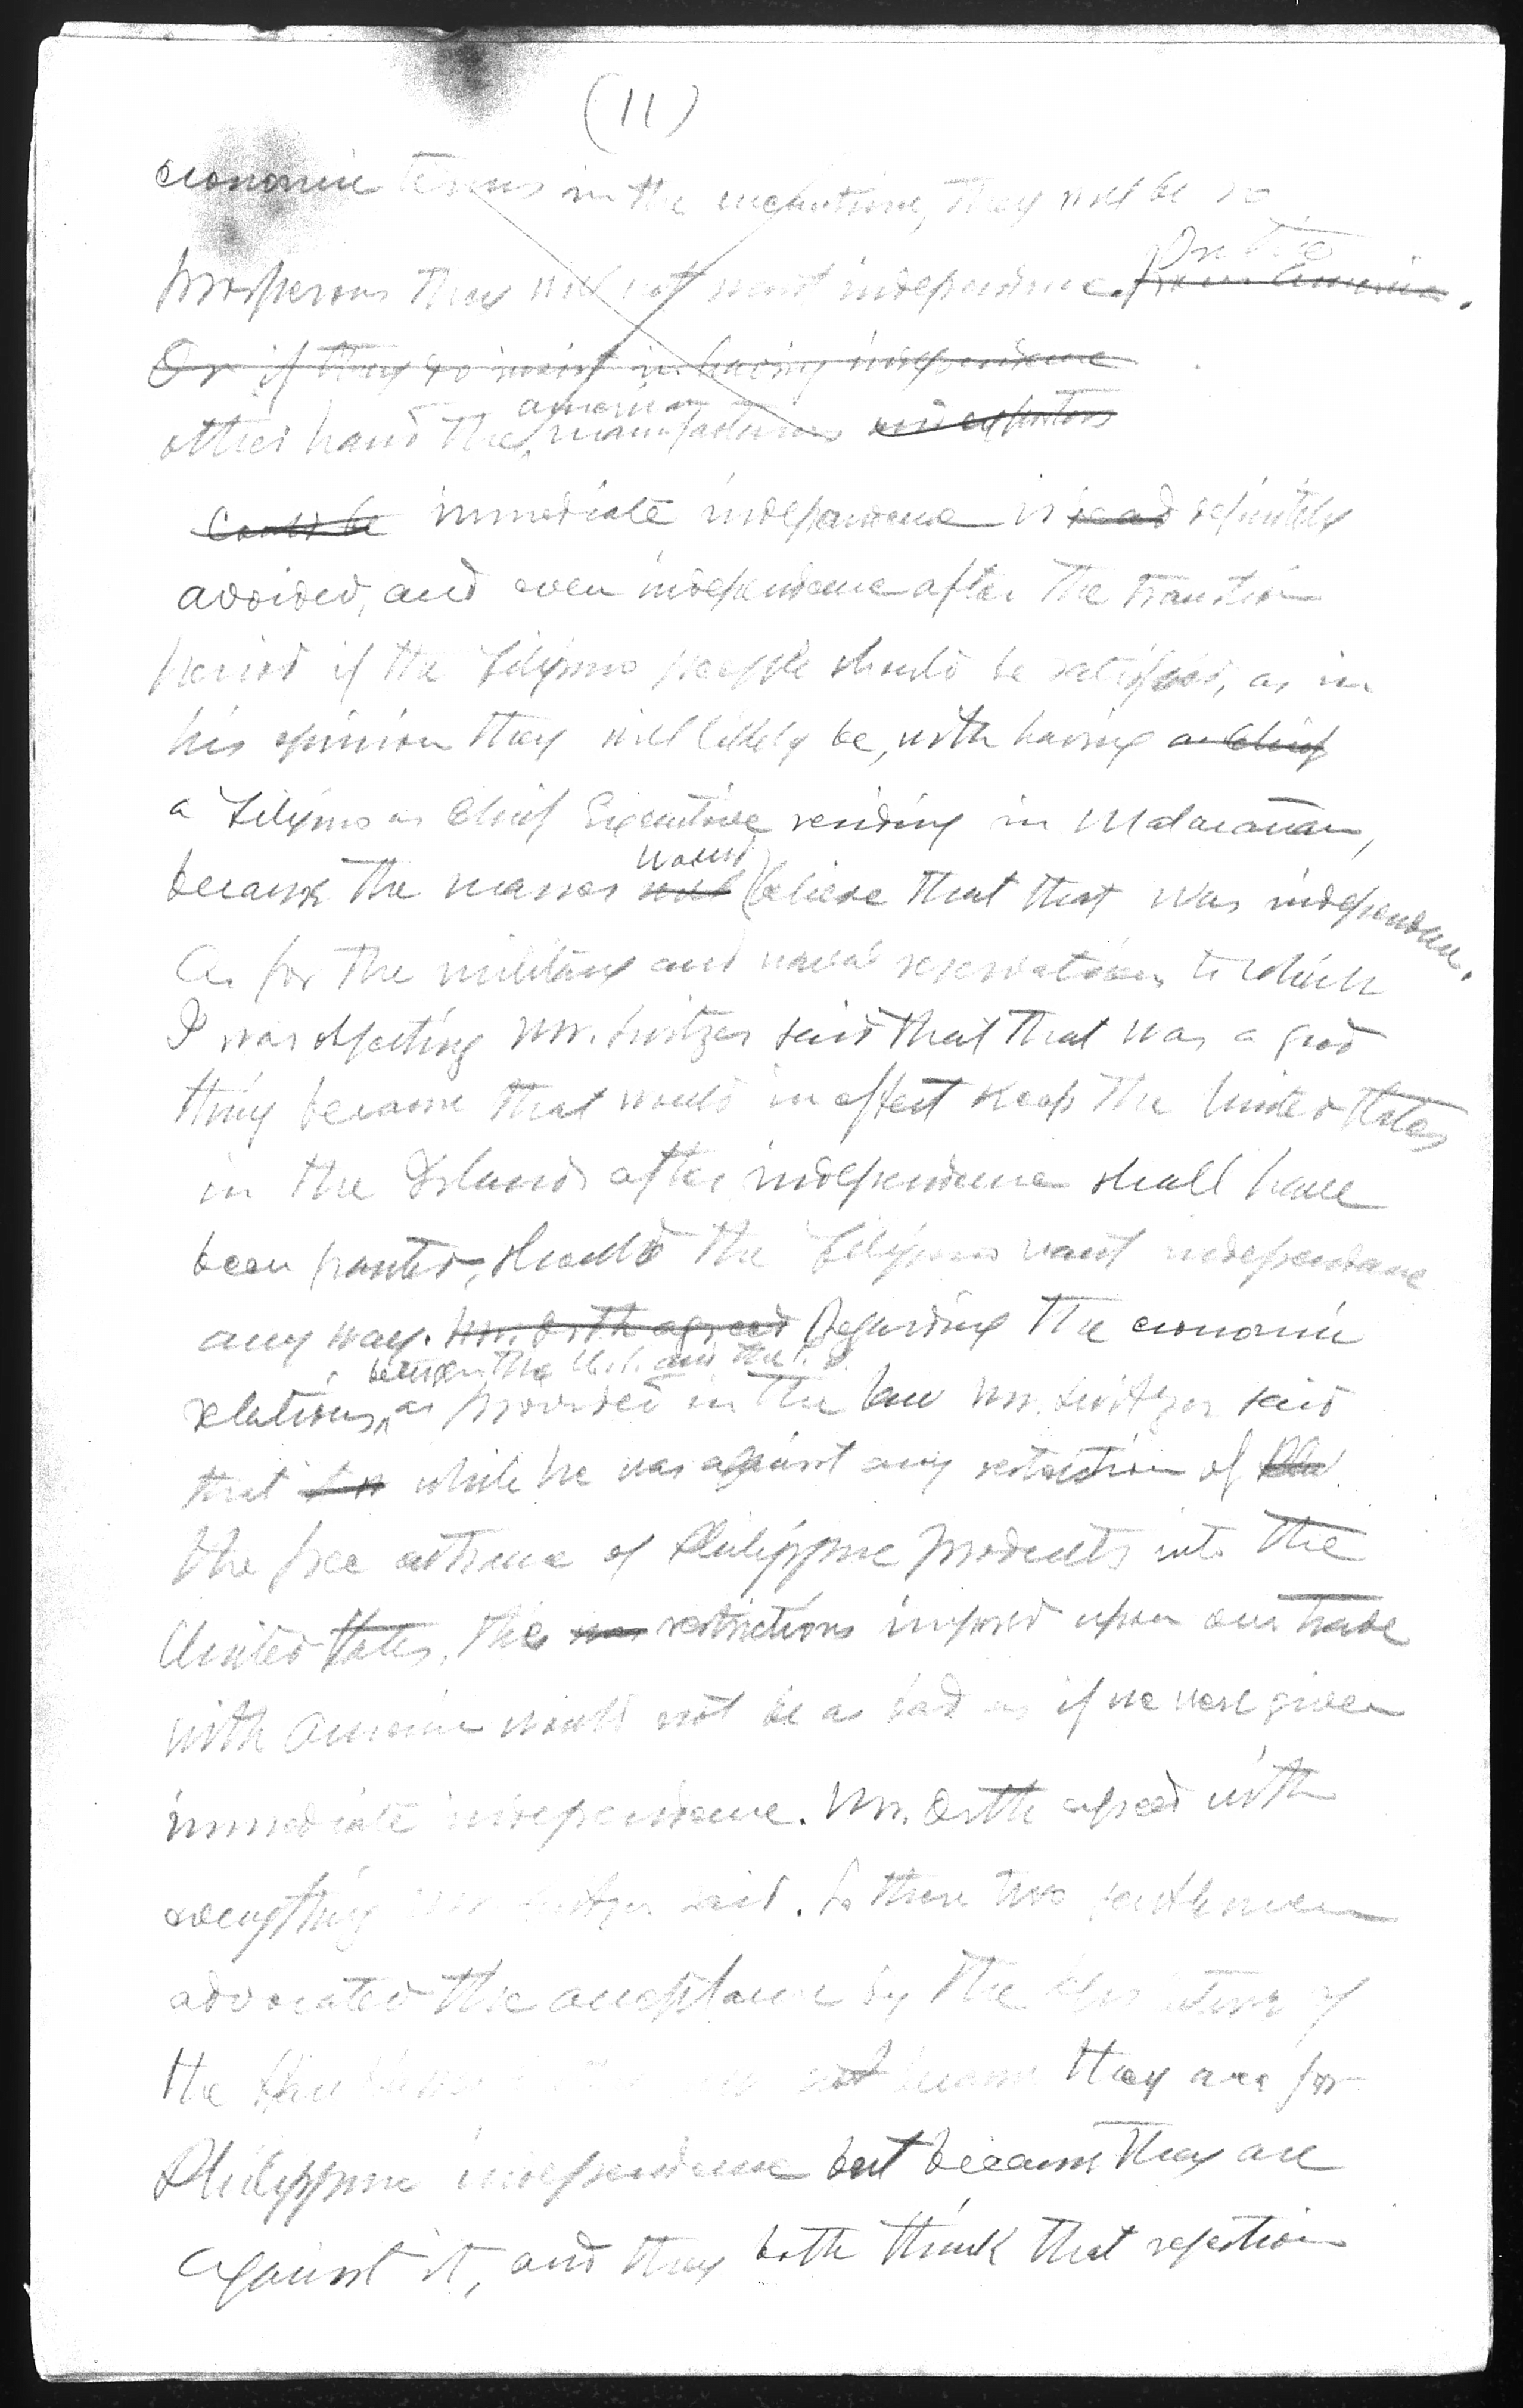 (11)
economic terms in the meantime, they will be so
prosperous they will not want independence. from America. On the
Or if they so insist in having independence
other hand the american manufacturers and exporters
could be immediate independence is definitely
avoided, and even independence after the transition
period if the Filipino people should be satisfied, as in
his opinion they will likely be, with having a chief
a Filipino as Chief Executive residing in Malacanan,
because the masses will would believe that that was independence.
As for the military and naval reservations to which
I was objecting Mr. Switzer said that that was a good
thing because that would in effect keep the United States
in the Islands after independence shall have
been granted, should the Filipinos want independence
any way. Mr. Orth agreed Regarding the economic
relations, between the U.S. and the P.I. as provided in the law Mr. Switzer said
that while he was against any restriction of
the free entrance of Philippine products into the
United States, the restrictions imposed upon our trade
with America would not be as bad as if we were given
immediate independence. Mr. Orth agreed with
everything Mr. Switzer said. So these two gentlemen
advocated the acceptance by the of
the not because they are for
Philippine independence but because they are
against it, and they both think that rejection